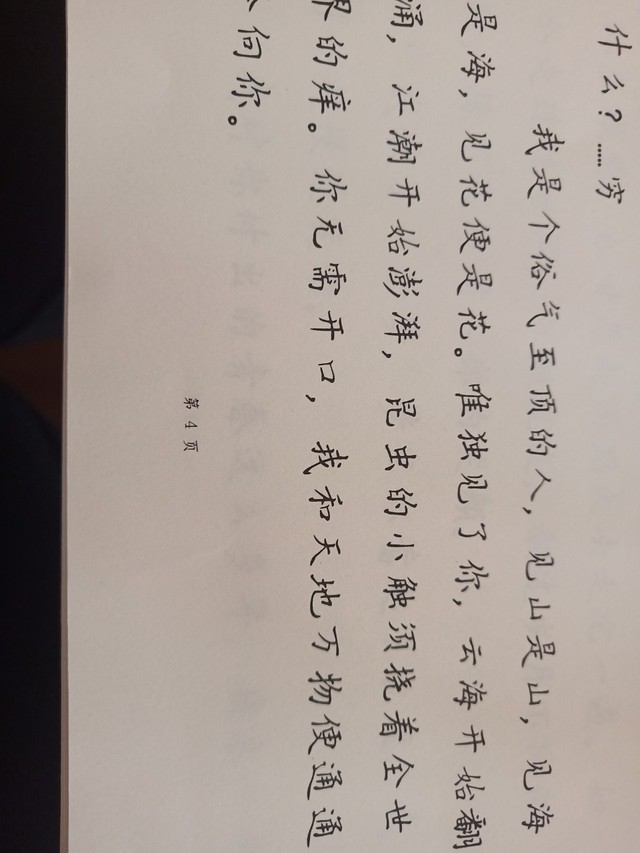 什么？……穷
我是个俗气至顶的人，见山是山，见海
是海，见花便是花。唯独见了你，云海开始翻
涌，江潮开始澎湃，昆虫的小触须挠着全世
界的痒。你无需开口，我和天地万物便通通
向你。
第 4 页